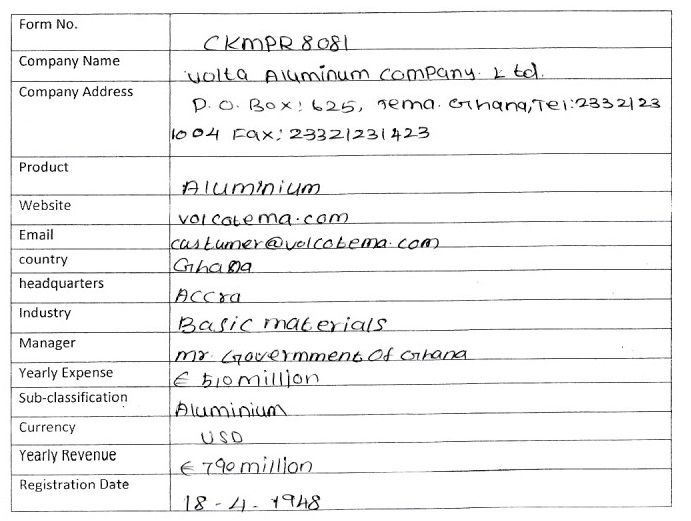 Form No.
CKMPR8081
Company Name
Volta Aluminum company. Ltd.
Company Address
P.O. Box: 625, Tema. Ghana, Tel: 2332123
1004 Fax: 23321231423
Product
Aluminium
Website
volcotema.com
Email
custumer@volcotema.com
country
Ghana
headquarters
Accra
Industry
Basic materials
Manager
mr. Government Of Ghana
Yearly Expense
€ 510 million
Sub-classification
Aluminium
Currency
USD
Yearly Revenue
€ 790 million
Registration Date
18-4-1948